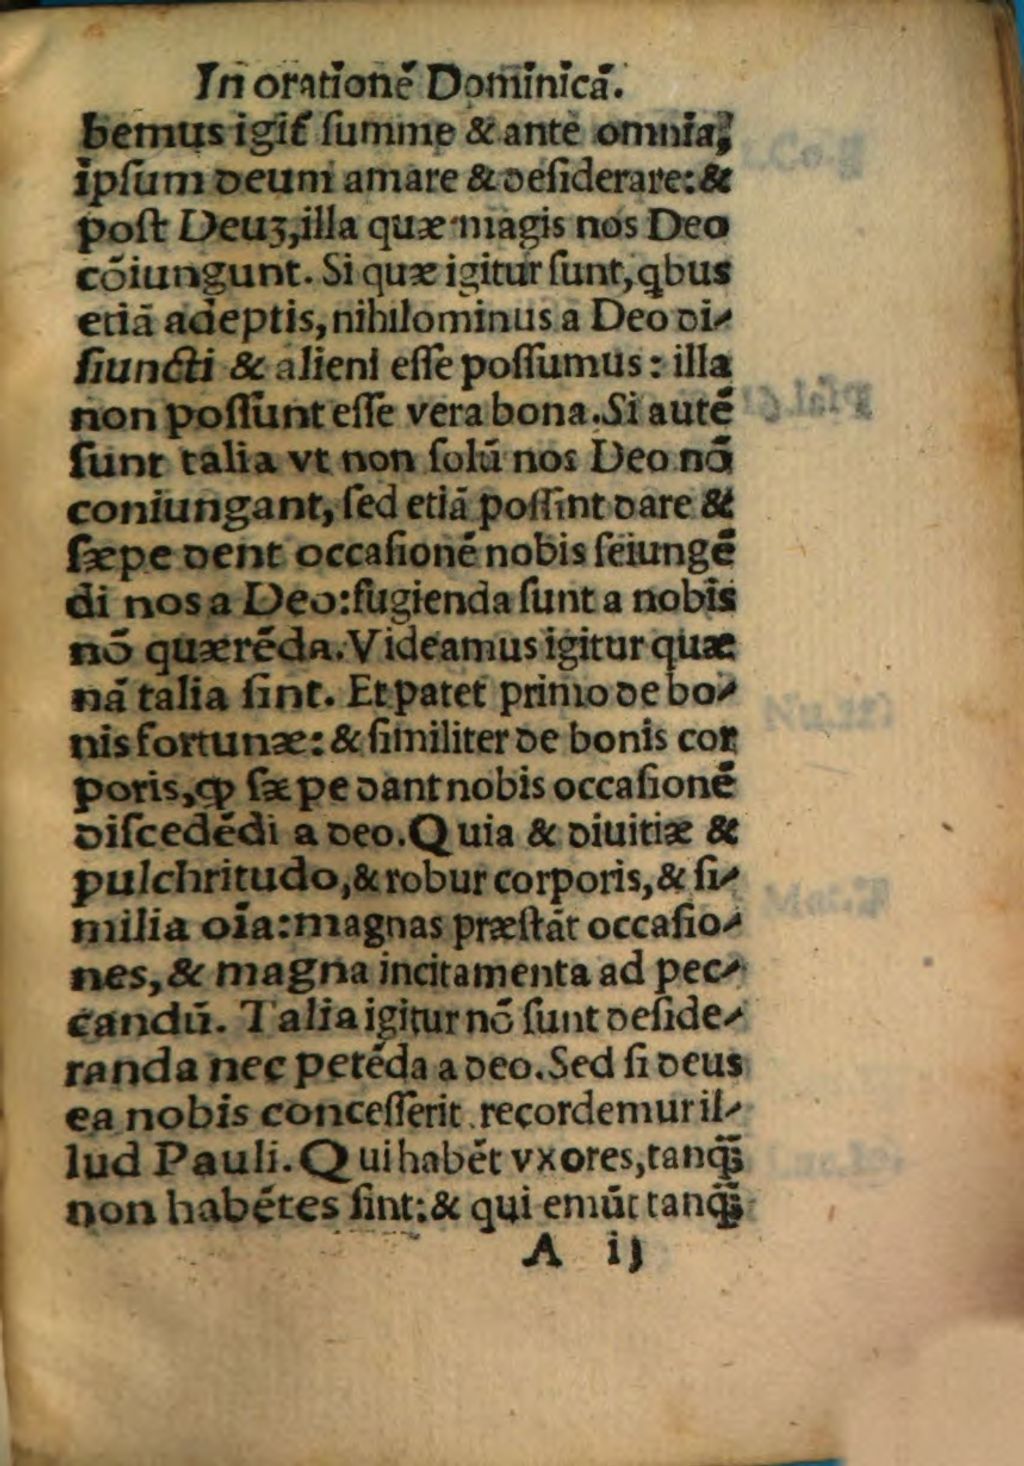 In orationē Dominicā.
bemus igit᷑ ſumme & ante omnia,
ipſum deum amare & deſiderare: &
poſt Deuꝫ, illa quæ magis nos Deo
cōiungunt. Si quæ igitur ſunt, qbus
etiā adeptis, nihilominus a Deo di⸗
ſiuncti & alieni eſſe poſſumus: illa
non poſſunt eſſe vera bona. Si autē
ſunt talia vt non ſolū nos Deo nō
coniungant, ſed etiā poſſint dare &
ſæpe dent occaſionē nobis ſeiungē
di nos a Deo: fugienda ſunt a nobis
nō quærēda. Videamus igitur quæ
nā talia ſint. Et patet primo de bo⸗
nis fortunæ: & ſimiliter de bonis cor
poris, ꝙ ſæpe dant nobis occaſionē
diſcedēdi a deo. Quia & diuitiæ &
pulchritudo, & robur corporis, & ſi⸗
milia oīa: magnas præſtāt occaſio⸗
nes, & magna incitamenta ad pec⸗
candū. Talia igitur nō ſunt deſide⸗
randa nec petēda a deo. Sed ſi deus
ea nobis conceſſerit recordemur il⸗
lud Pauli. Qui habēt vxores, tanq̄ꝫ
non habētes ſint: & qui emūt tanq̄ꝫ
A ij